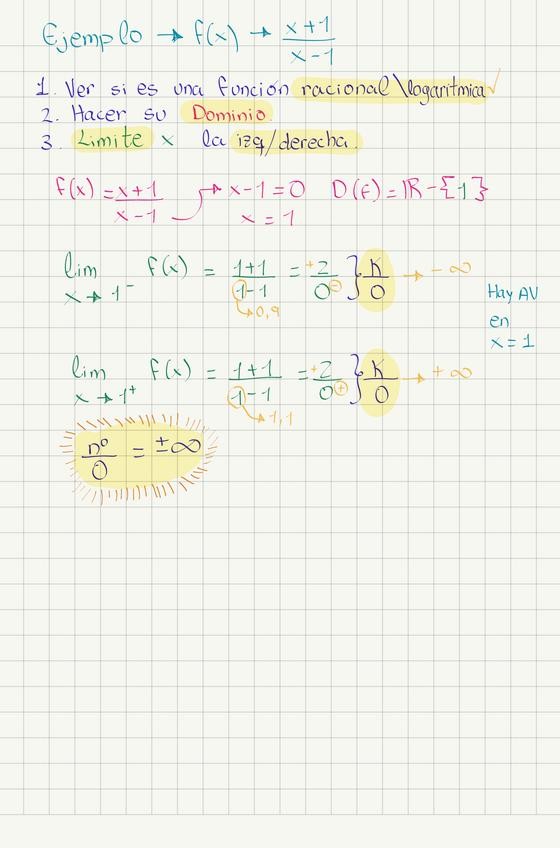 Ejemplo → f(x) → x+1 / x-1
1. Ver si es una función racional\logarítmica ✓
2. Hacer su Dominio
3. Limite x la izq/derecha.
f(x) = x+1 / x-1 → x-1=0 D(f)=ℝ-{1}
x = 1
lim x→1⁻ f(x) = 1+1 / 1-1 = +2 / 0⊖ } K / 0 → -∞
0,9
Hay AV
en
x=1
lim x→1⁺ f(x) = 1+1 / 1-1 = +2 / 0⊕ } K / 0 → +∞
1,1
nº / 0 = ±∞